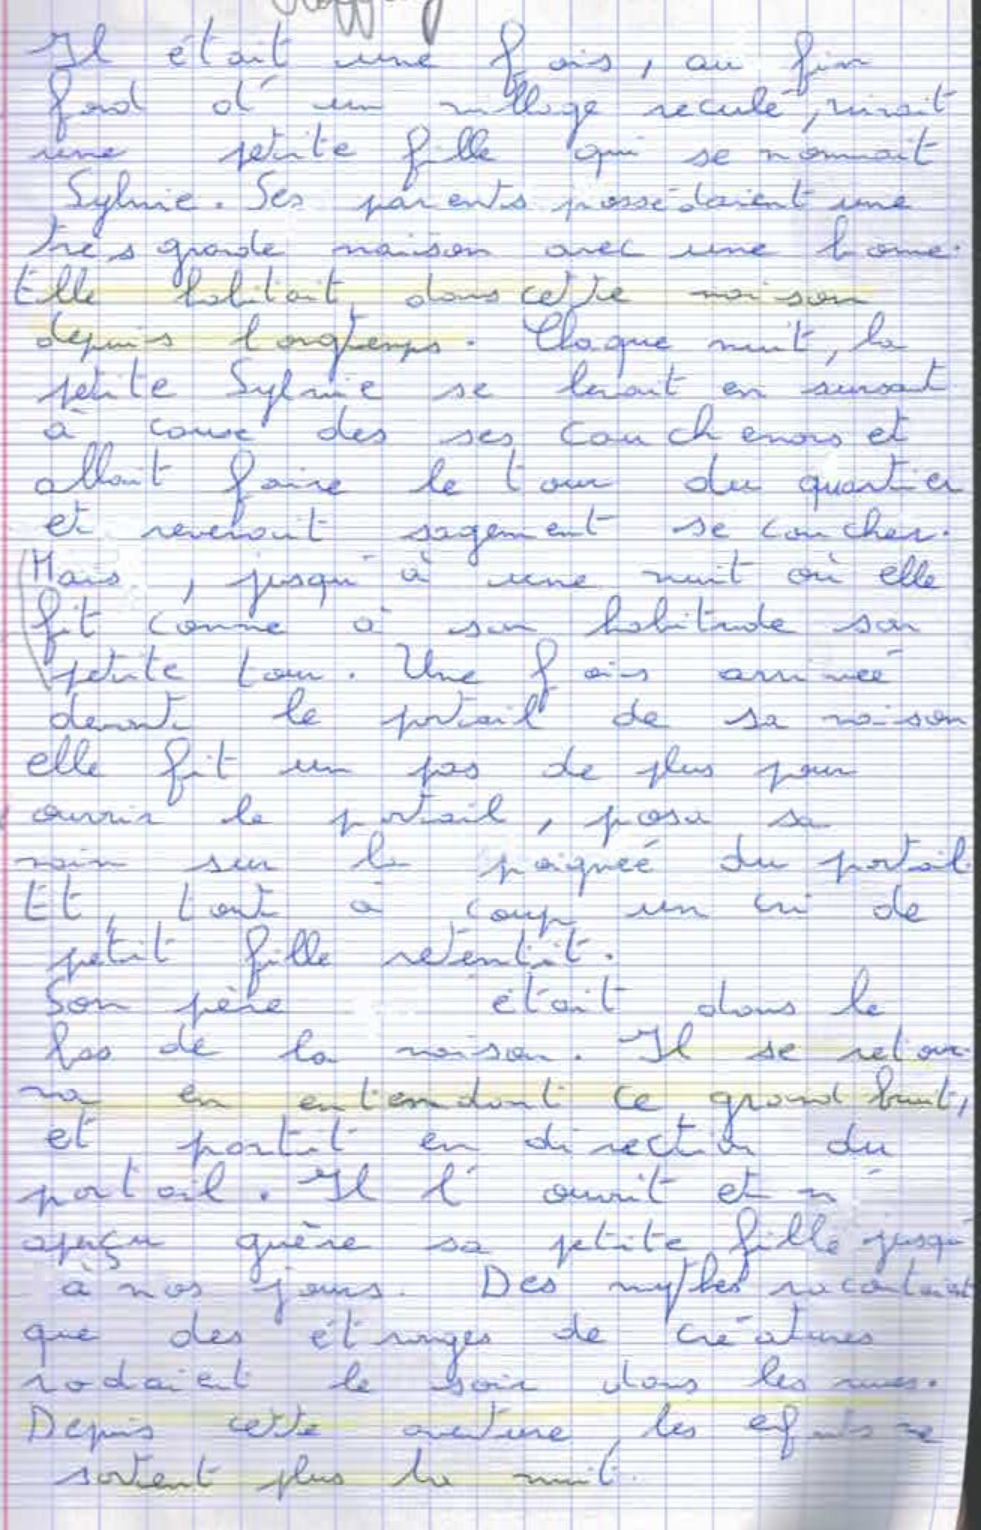 Il était une fois, au fin
fond d'un village reculé, vivait
une petite fille qui se nommait
Sylvie. Ses parents possédaient une
très grande maison avec une bonne.
Elle habitait dans cette maison
depuis longtemps. Chaque nuit, la
petite Sylvie se levait en sursaut
à cause des ses cauchemars et
allait faire le tour du quartier
et revenait sagement se coucher.
Mais, jusqu'à une nuit où elle
fit comme à son habitude son
petite tour. Une fois arrivée
devant le portail de sa maison
elle fit un pas de plus pour
ouvrir le portail, posa sa
main sur la poignée du portail.
Et, tout à coup un cri de
petit fille retentit.
Son père était dans le
bas de la maison. Il se retour
na en entendant ce grand bruit,
et partit en direction du
portail. Il l'ouvrit et n'
aperçu guère sa petite fille jusqu'
à nos jours. Des mythes racontaient
que des étranges de créatures
rodaient le soir dans les rues.
Depuis cette aventure, les efants ne
sortent plus la nuit.